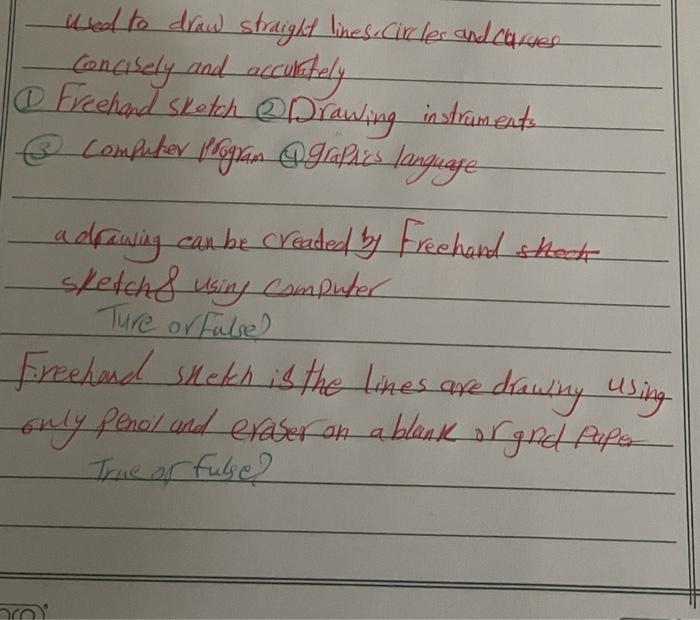 used to draw straight lines, circles and curves
Concisely and accurately
① Freehand sketch ② Drawing instruments
③ Computer Program ④ graphics language
a drawing can be creaded by Freehand skech
sketch & using computer
Ture or False?
Freehand sketch is the lines are drawing using
only Pencil and eraser on a blank or grid Paper
True or False?